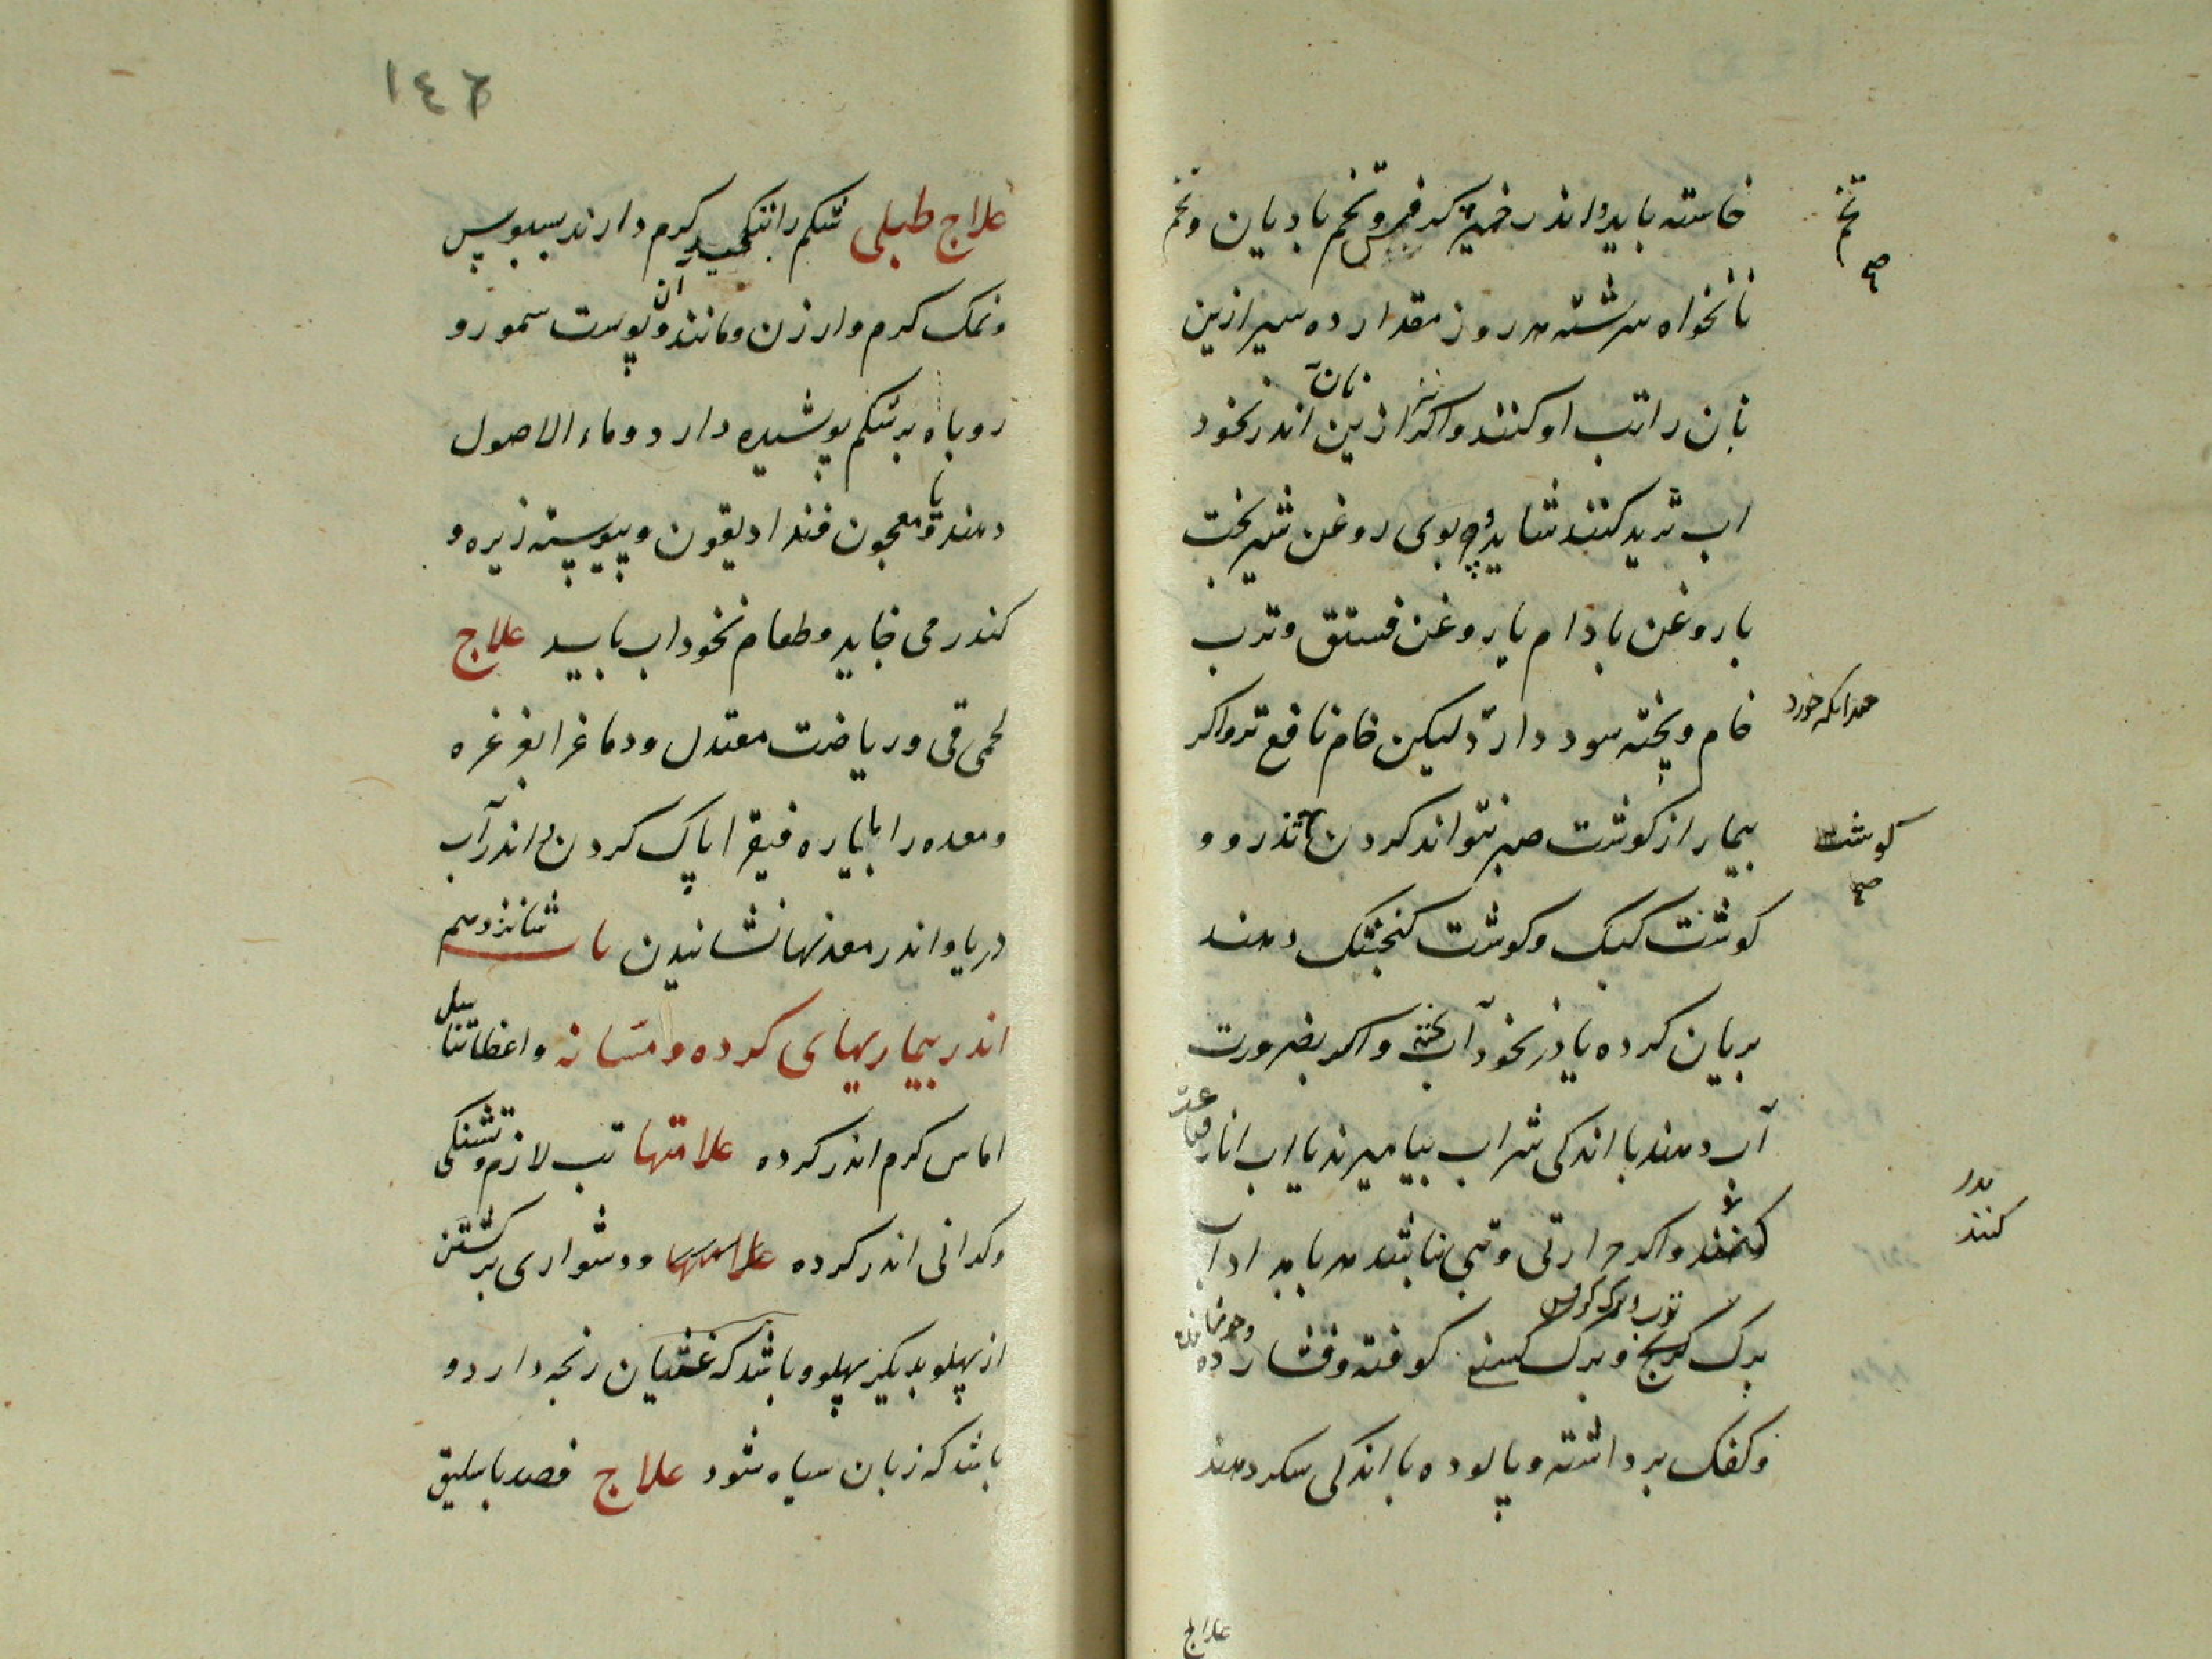 خاسته باید و اندر خمیر کرفس و تخم بادیان و تخم
تخم
صح
نانخواه سرشته هر روز مقدار ده سیر ازین
نان راتب او کنند و اکر ازین نان اندر نخود
اب ترید کنند شاید و چربوی روغن شیرپخت
با روغن بادام یا روغن فستق و ترب
خام و پخته سود دارد لیکن خام نافع تر و اکر
بیمار از کوشت صبر نتواند کردن تذرو و
کوشت
صح
کوشت کبک و کوشت کنجشک دهند
بریان کرده یا در نخود آب پخته و اکر بضرورت
آب دهند با اندکی شراب بیامیزند یا اب انار
کنند و اکر حرارتی و تبی نباشد هر بامداد اب
کنند
برک ترب و برک کرفس و برک کسنه کوفته و فشارده
و کفک برداشته و پالوده با اندکی سکر دهند
علاج
١٤٦
علاج طبلی شکم را بتکمید کرم دارند بسبوس
و نمک کرم و ارزن و مانند ان و پوست سمور و
روباه بر شکم پوشیده دارد و ماء الاصول
دهند با معجون فندادیقون و پیوسته زیره و
کندر می خاید و طعام نخوداب باید علاج
لحمی قی و ریاضت معتدل و دماغ را بغرغره
و معده را با یاره فیقرا پاک کردن و اندر آب
دریا و اندر معدنها نشانیدن باب شانزدهم
اندر بیماریهای کرده و مثانه و اعضا تناسل
اماس کرم اندر کرده علامتها تب لازم و تشنکی
و کرانی اندر کرده و دشواری برکشتن
از پهلو بدیکر پهلو و باشد که غثیان رنجه دارد و
باشد که زبان سیاه شود علاج فصد باسلیق